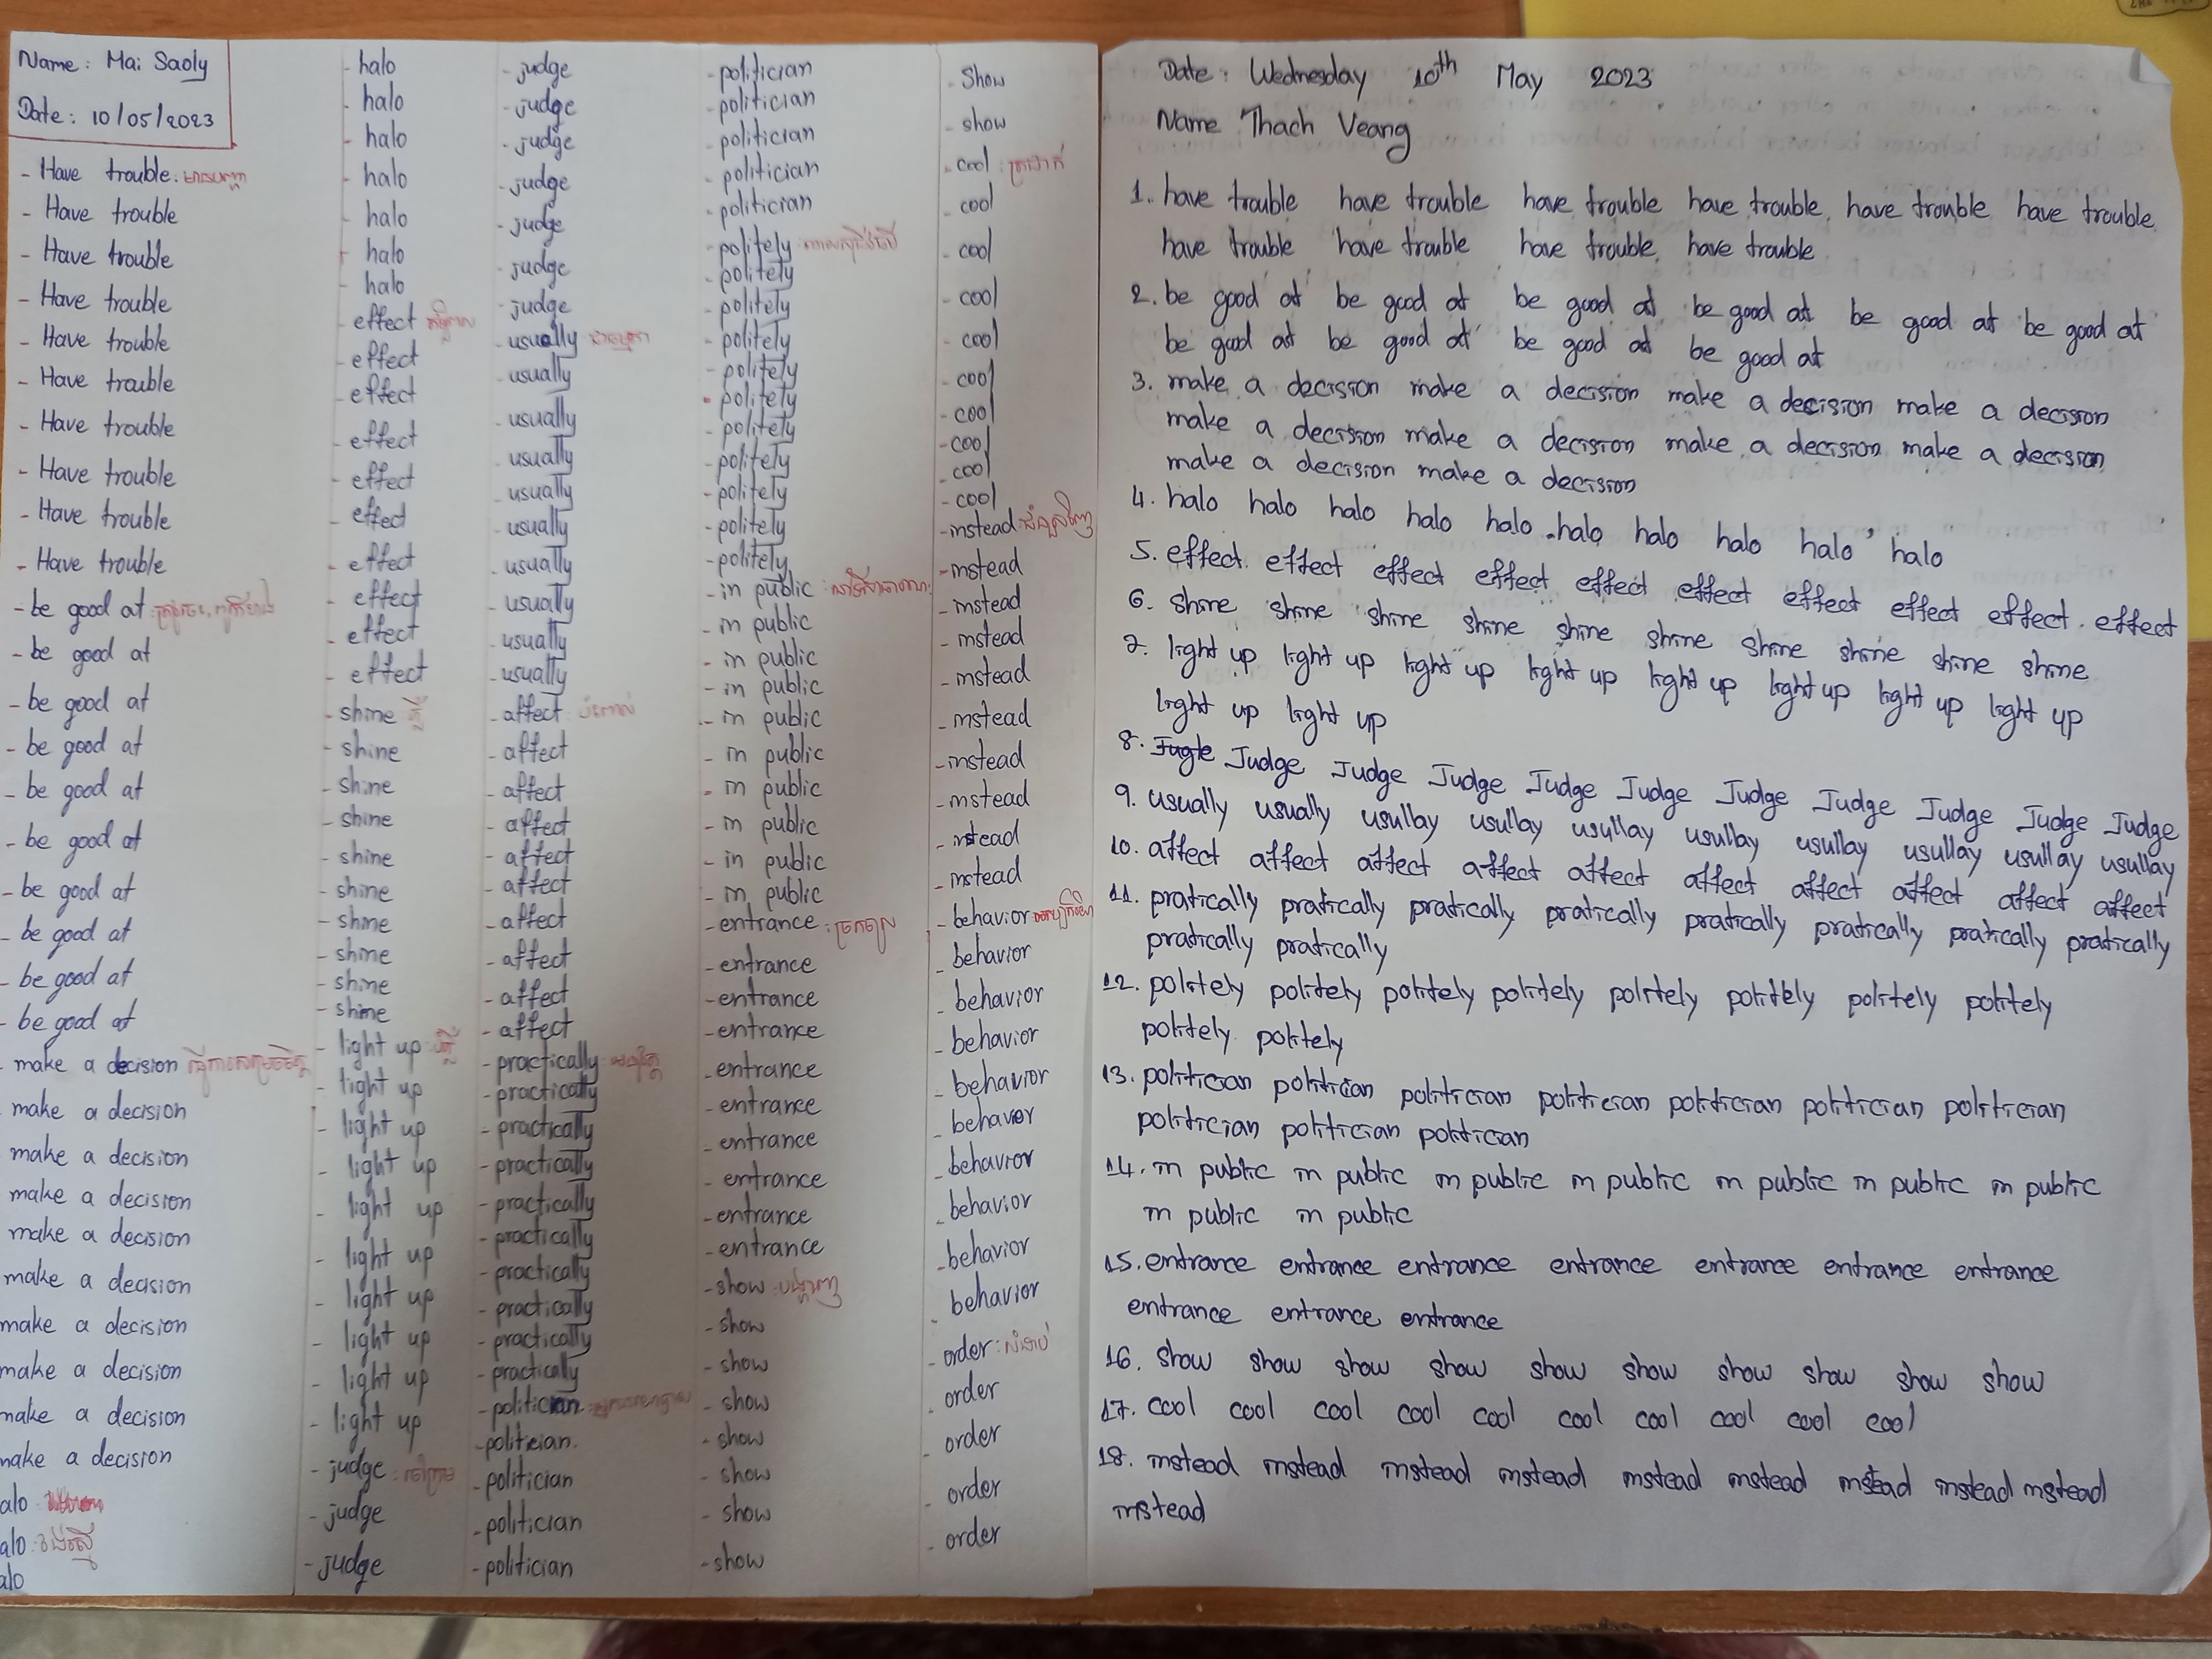 Name: Mai Saoly
Date: 10/05/2023
- Have trouble: មានបញ្ហា
- Have trouble
- Have trouble
- Have trouble
- Have trouble
- Have trouble
- Have trouble
- Have trouble
- Have trouble
- Have trouble
- be good at
- be good at
- be good at
- be good at
- be good at
- be good at
- be good at
- be good at
- be good at
- be good at
make a decision ធ្វើការសម្រេចចិត្ត
make a decision
make a decision
make a decision
make a decision
make a decision
make a decision
make a decision
make a decision
make a decision
alo
alo
alo
- halo
- halo
- halo
- halo
- halo
- halo
- halo
- effect
- effect
- effect
- effect
- effect
- effect
- effect
- effect
- effect
- effect
- shine ភ្លឺ
- shine
- shine
- shine
- shine
- shine
- shine
- shine
- shine
- shine
- light up បំភ្លឺ
- light up
- light up
- light up
- light up
- light up
- light up
- light up
- light up
- light up
- judge : ចៅក្រម
- judge
- judge
- judge
- judge
- judge
- judge
- judge
- judge
- judge
- usually ជាធម្មតា
- usually
- usually
- usually
- usually
- usually
- usually
- usually
- usually
- usually
- affect
- affect
- affect
- affect
- affect
- affect
- affect
- affect
- affect
- affect
- practically
- practically
- practically
- practically
- practically
- practically
- practically
- practically
- practically
- practically
- politician
- politeian.
- politician
- politician
- politician
- politician
- politician
- politician
- politician
- politician
- politely
- politely
- politely
- politely
- politely
- politely
- politely
- politely
- politely
- politely
- politely
- in public
- in public
- in public
- in public
- in public
- in public
- in public
- in public
- in public
- in public
- entrance : ច្រកចូល
- entrance
- entrance
- entrance
- entrance
- entrance
- entrance
- entrance
- entrance
- entrance
- show : បង្ហាញ
- show
- show
- show
- show
- show
- show
- show
- Show
- show
- cool : ត្រជាក់
- cool
- cool
- cool
- cool
- cool
- cool
- cool
- cool
- cool
- instead ជំនួសវិញ
- instead
- instead
- instead
- instead
- instead
- instead
- instead
- instead
- instead
- behavior
- behavior
- behavior
- behavior
- behavior
- behavior
- behavior
- behavior
- behavior
- behavior
- order : លំដាប់
- order
- order
- order
- order
Date : Wednesday 10th May 2023
Name Thach Veang
1. have trouble have trouble have trouble have trouble have trouble have trouble
have trouble have trouble have trouble have trouble
2. be good at be good at be good at be good at be good at be good at
be good at be good at be good at be good at
3. make a decision make a decision make a decision make a decision
make a decision make a decision make a decision make a decision
make a decision make a decision
4. halo halo halo halo halo halo halo halo halo halo
5. effect effect effect effect effect effect effect effect effect effect
6. shine shine shine shine shine shine shine shine shine shine
7. light up light up light up light up light up light up light up light up
light up light up
8. Jugle Judge Judge Judge Judge Judge Judge Judge Judge Judge Judge
9. usually usually usullay usullay usullay usullay usullay usullay usullay usullay
10. affect affect affect affect affect affect affect affect affect affect
11. pratically pratically pratically pratically pratically pratically pratically pratically
pratically pratically
12. politely politely politely politely politely politely politely politely
politely politely
13. politician politician politician politician politician politician politician
politician politician politican
14. in public in public in public in public in public in public in public
in public in public
15. entrance entrance entrance entrance entrance entrance entrance
entrance entrance entrance
16. show show show show show show show show show show
17. cool cool cool cool cool cool cool cool cool cool
18. instead instead instead instead instead instead instead instead instead
instead